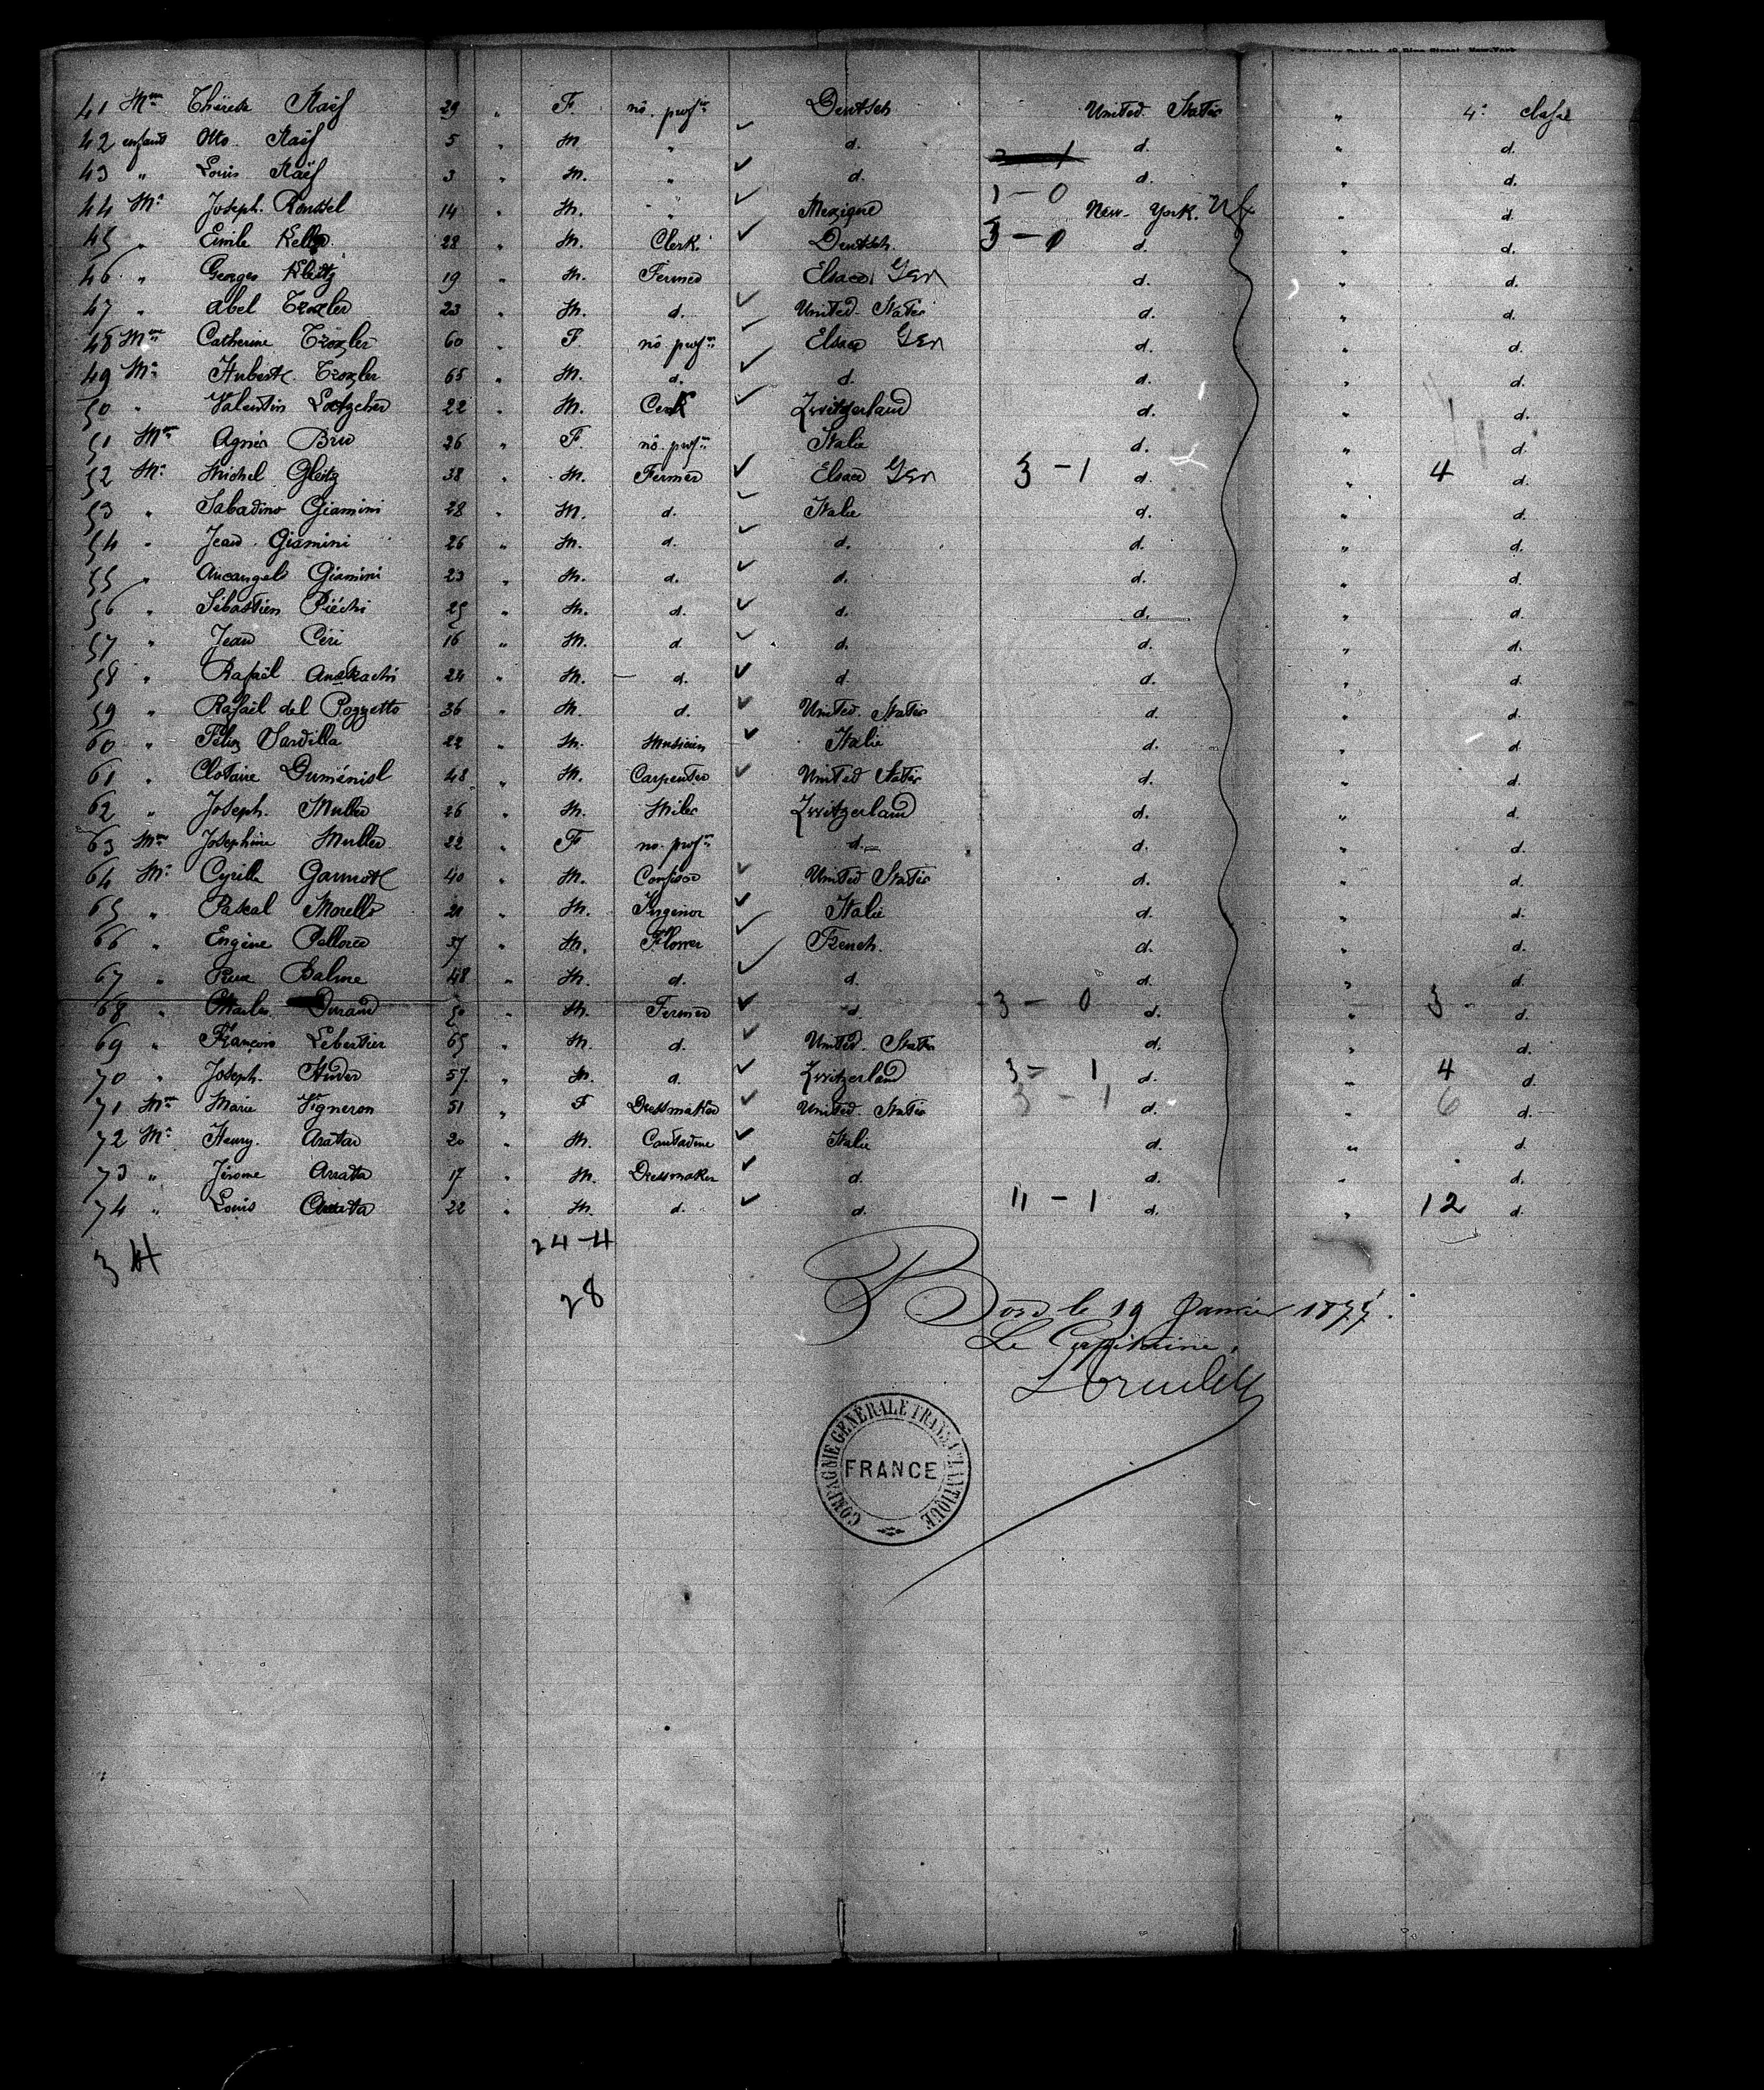 41 Mme Thérèse 29 " F. no. profon Deutsch United States " 4e Classe
42 enfant Otto. 5 " M. " d. d. " d.
43 " Louis 3 " M. " d. d. " d.
1 - 0
44 Mr Joseph. 14 " M. " Mexique New-York. " d.
45 " Emile 28 " M. Clerk. Deutsch. 3 - 0 d. " d.
46 " Georges 19 " M. Fermer Elsace Ger d. " d.
47 " Abel Troxler 23 " M. d. United-States d. " d.
48 Mme Catherine Troxler 60 " F. no. profon Elsace Ger d. " d.
49 Mr Hubert Troxler 65 " M. d. d. d. " d.
50 " Valentin 22 " M. Clerk Zwitzerland d. " d.
51 Mme Agnès 26 " F no. profon Italie d. " d.
52 Mr Michel Gleitz 38 " M. Fermer Elsace Ger 3 - 1 d. " 4 d.
53 " Sabadino Giamini 28 " M. d. Italie d. " d.
54 " Jean Giamini 26 " M. d. d. d. " d.
55 " Arcangelo Giamini 23 " M. d. d. d. " d.
56 " Sébastien 25 " M. d. d. d. " d.
57 " Jean 16 " M. d d. d. " d.
58 " Rafaël 24 " M. d. d. d. " d.
59 " Rafaël del Pozzetto 36 " M. d. United. States d. " d.
60 " Félix Sardilla 22 " M. Musicien Italie d. " d.
61 " Clotaire Duménisl 48 " M. Carpenter United States d. " d.
62 " Joseph. Muller 26 " M. Miler Zwitzerland d. " d.
63 Mme Joséphine Muller 22 " F no. profon d. d. " d.
64 Mr Cyrille 40 " M. United States d. " d.
65 " Pascal Morello 21 " M. Italie d. " d.
66 " Eugène 37 " M. French. d. " d.
67 " Balme 48 " M. d. d. d. " d.
68 " Charles Durand 50 " M. Fermer d. 3 - 0 d. " 3 d.
69 " François Lebertier 65 " M. d. United. States d. " d.
70 " Joseph. Studer 57 " M. d. Zwitzerland 3 - 1 d. " 4 d.
71 Mme Marie Vigneron 51 " F Dressmaker United. States 3 - 1 d. " 6 d.
72 Mr Henry. 20 " M. Italie d. " d.
73 " Jérome Arrata 17 " M. Dressmaker d. d. " d.
74 " Louis Arrata 22 " M. d. d. 11 - 1 d. " 12 d.
34 24-4
28
Bord le 19 Janvier 1875.
Le Capitaine,
COMPAGNIE GENERALE TRANSATLANTIQUE
FRANCE